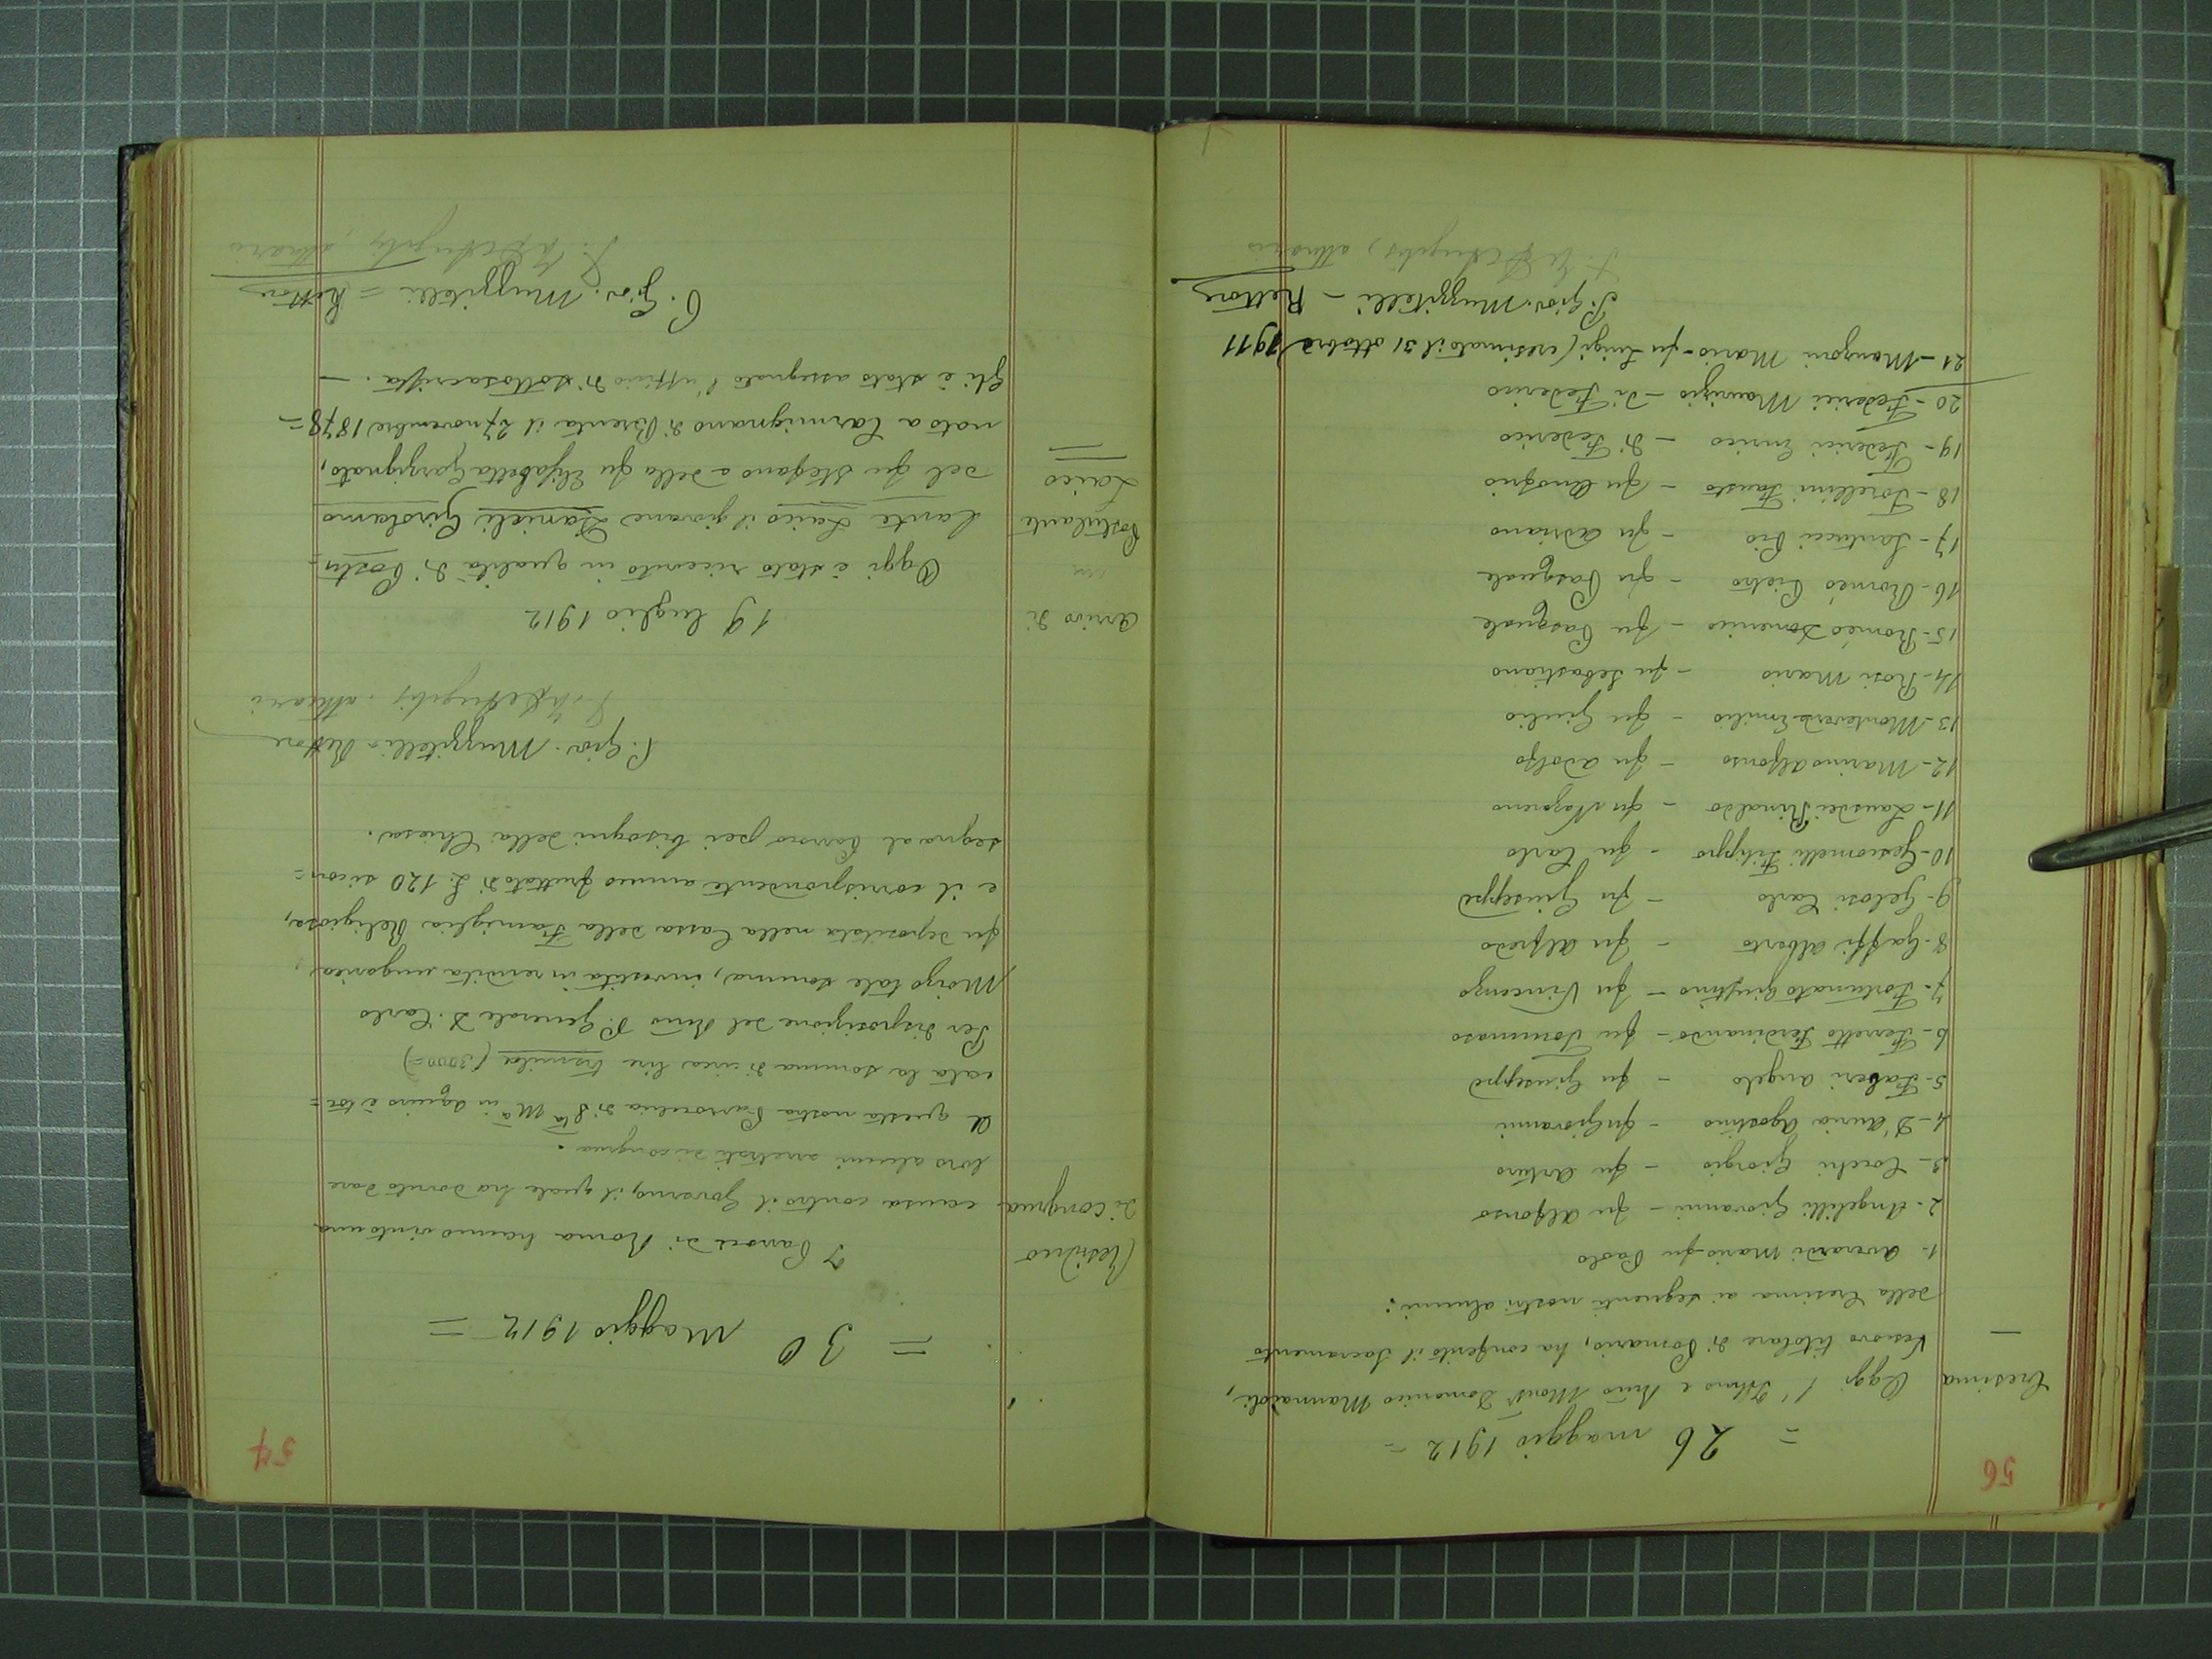 56
= 26 maggio 1912 =
Cresima
Oggi l'Illmo e Rmo Mons. Domenico Mannaioli,
Vescovo titolare di Pomario, ha conferito il Sacramento
della Cresima ai seguenti nostri alunni:
1. Averardi Mario fu Paolo
2. Angelilli Giovanni - fu Alfonso
3. Cocchi Giorgio - fu Arturo
4. D'Auria Agostino - fu Giovanni
5. Faberi Angelo - fu Giuseppe
6. Ferretti Ferdinando - fu Tommaso
7. Fortunato Giustino - fu Vincenzo
8. Gaffi Alberto - fu Alfredo
9. Gelosi Carlo - fu Giuseppe
10. Gescionelli Filippo - fu Carlo
11. Lausdei Rinaldo - fu Nazareno
12. Marino Alfonso - fu Adolfo
13. Monteverde Emilio - fu Giulio
14. Rosi Mario - fu Sebastiano
15. Romeo Domenico - fu Pasquale
16. Romeo Pietro - fu Pasquale
17. Santucci Pio - fu Adriano
18. Torellini Fausto - fu Onofrio
19. Federici Enrico - di Federico
20. Federici Maurizio - di Federico
21. Manzoni Mario fu Luigi (cresimato il 31 ottobre 1911
P. Giov. Muzzitelli - Rettore
P. A. De Angelis, attuario
57
= 30 Maggio 1912 =
Residuo
di congrua
I Parroci di Roma hanno vinto una
causa contro il Governo, il quale ha dovuto dare
loro alcuni arretrati di congrua.
A questa nostra Parrocchia di Sta Ma in Aquiro è toc=
cata la somma di circa lire tremila (3000=)
Per disposizione del Rmo P. Generale D. Carlo
Moizo tale somma, investita in rendita ungarica,
fu depositata nella Cassa della Famiglia Religiosa,
e il corrispondente annuo fruttato di L. 120 si con=
segna al Parroco pei bisogni della Chiesa.
P. Giov. Muzzitelli = Rettore
P. A. De Angelis, attuario
19 luglio 1912
Arrivo di
un
Postulante
Laico
Oggi è stato ricevuto in qualità di Postu=
lante Laico il giovane Danieli Girolamo
del fu Stefano e della fu Elisabetta Garzignato,
nato a Carmignano di Brenta il 27 novembre 1878=
Gli è stato assegnato l'ufficio di sottosacrista. -
P. Giov. Muzzitelli = Rettore
P. A. De Angelis, attuario